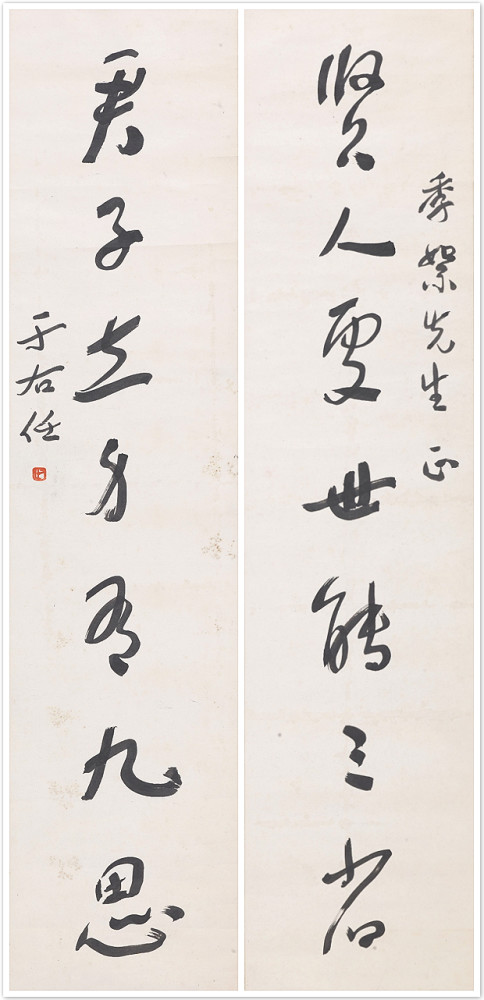 季絮先生正
賢人處世能三省
君子立身有九思
于右任